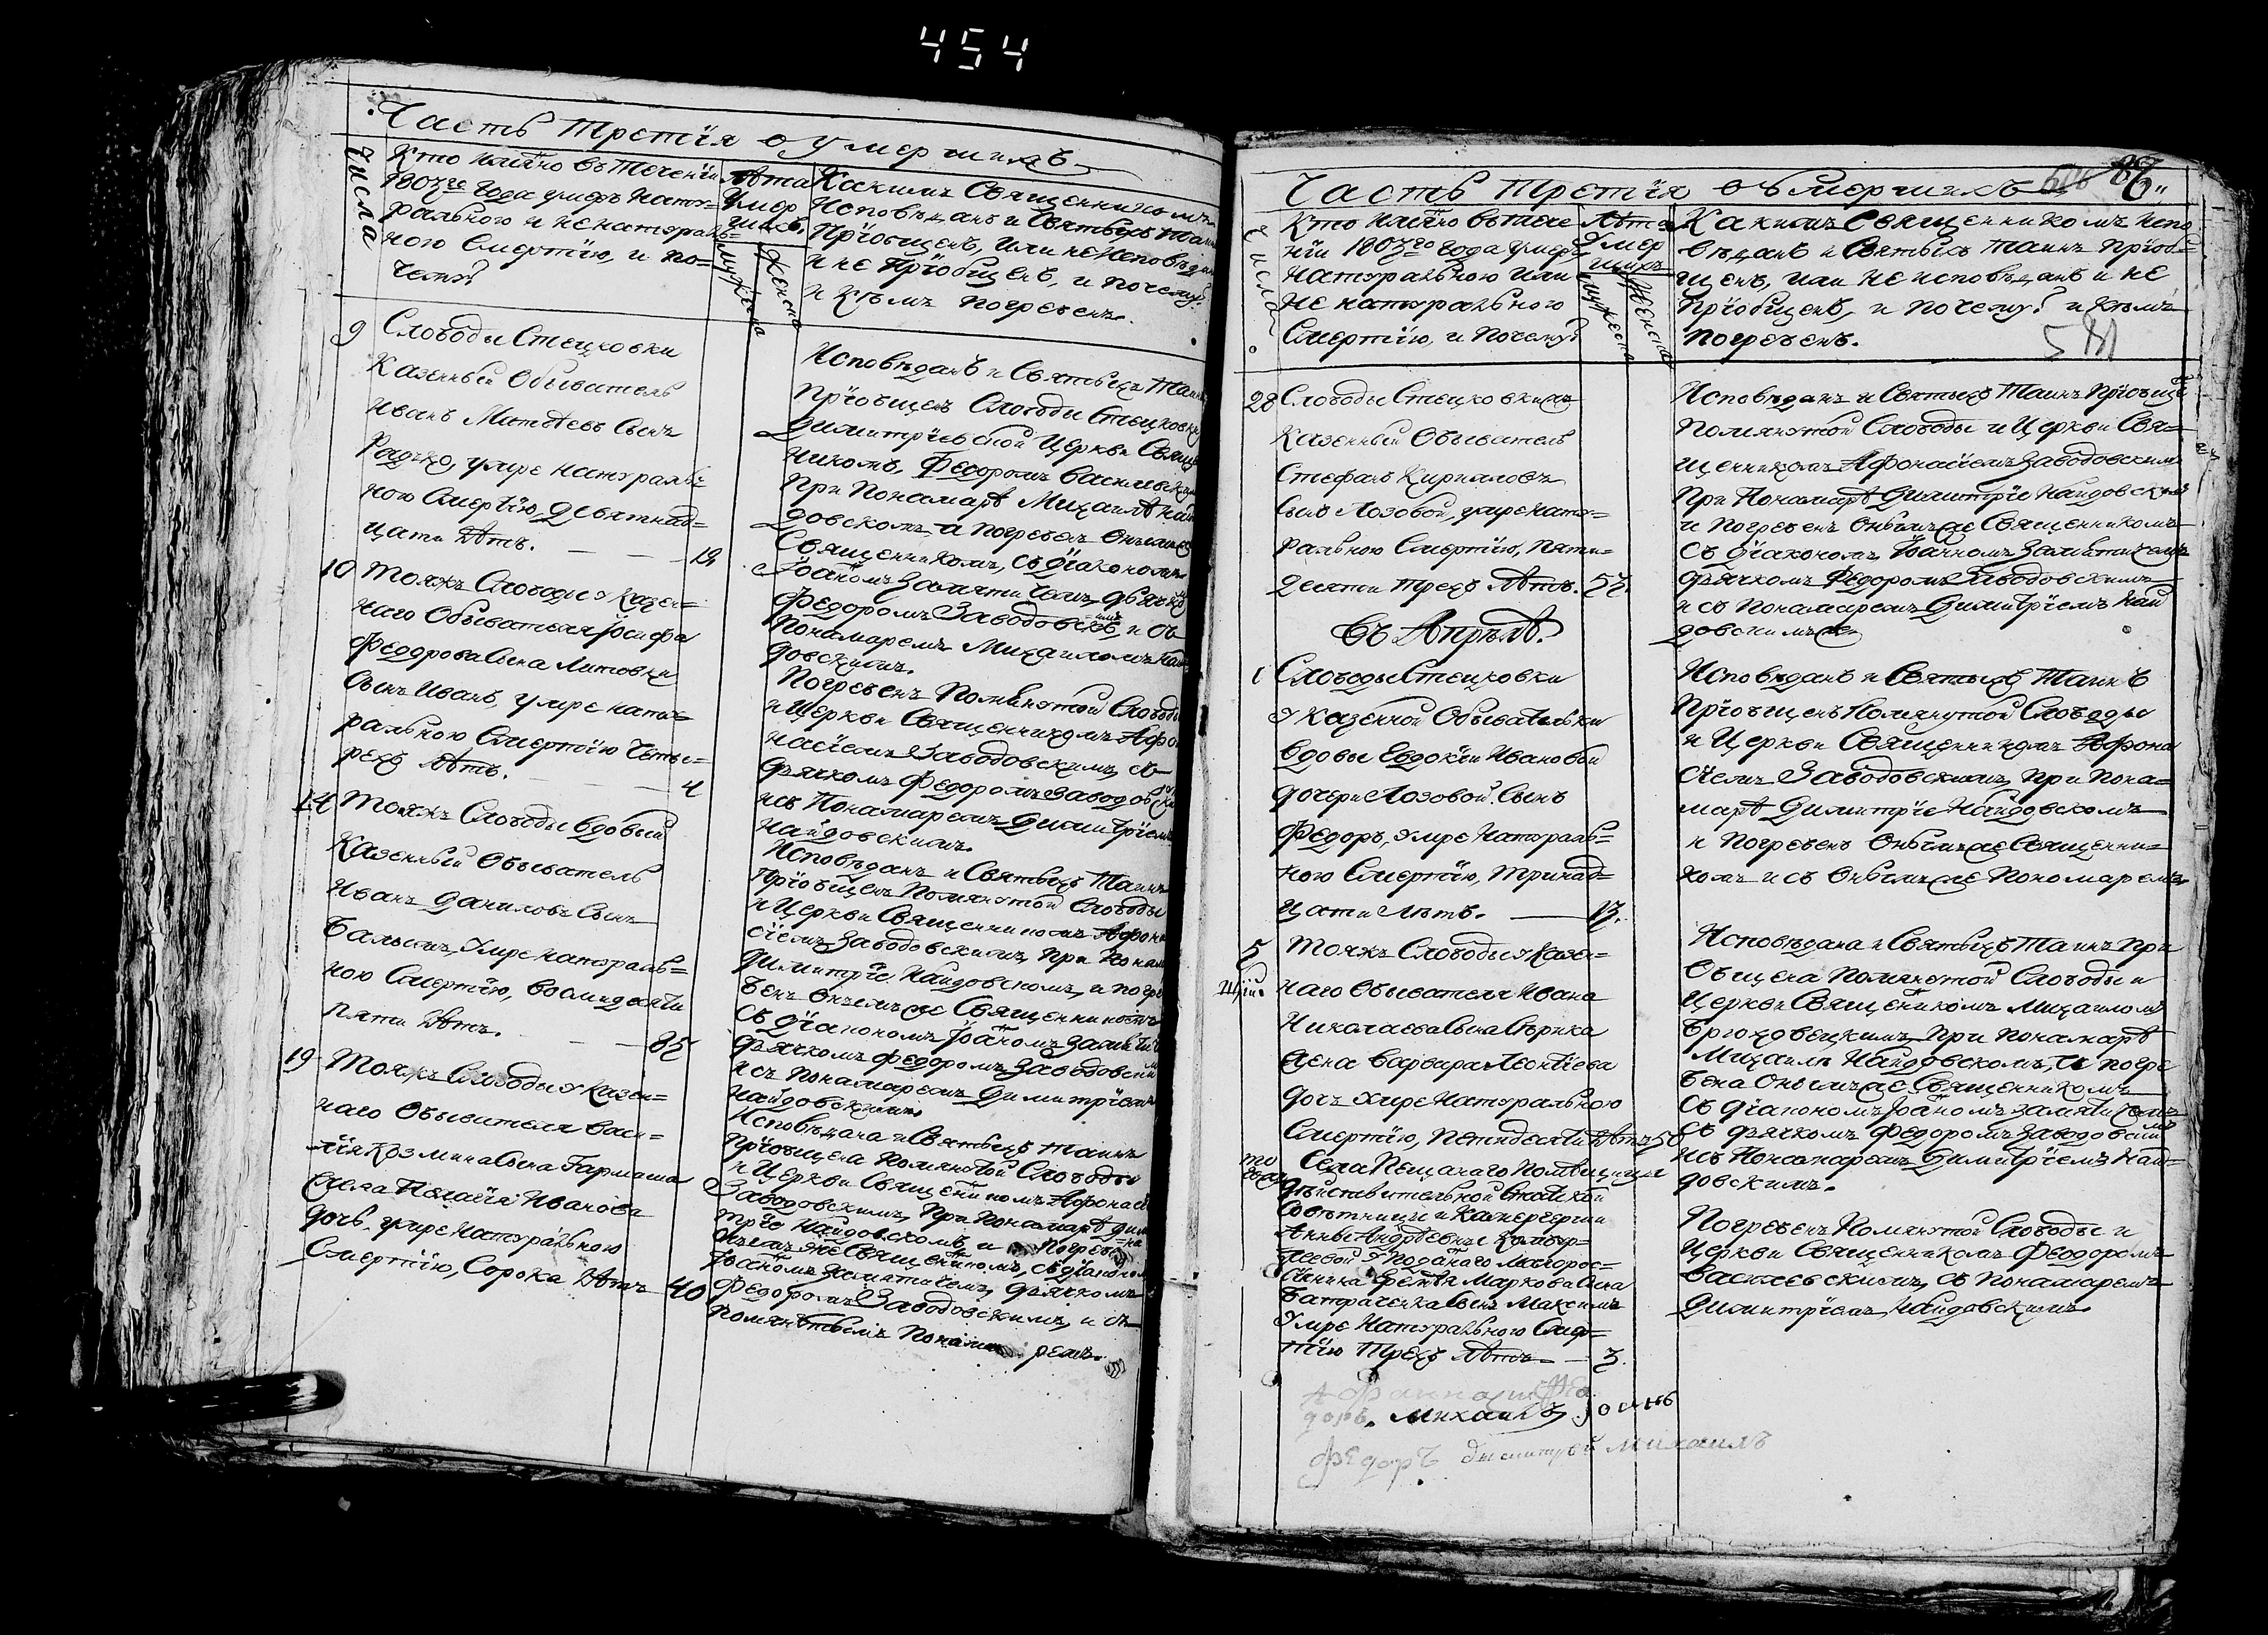 454
Часть Третія о умершихъ
Числа
Кто имянно въ теченіи
1803го Года умеръ Нату=
ральною и ненатураль=
ною Смертію, и по=
чему?
Лѣта
Умер
шихъ.
Мужеска
Женска
Какимъ Священникомъ
Исповѣданъ и Святыхъ Таин
Пріобщенъ, или не Исповѣдан
и не Пріобщенъ, и почему?
и кѣмъ погребенъ.
9
Слободы Стецковки
Казенный Обыватель
Иванъ Матвѣевъ Сынъ
умре натураль=
ною Смертію, девятнад=
цати Лѣтъ. 19
Исповѣданъ и Святыхъ Таин
Пріобщенъ Слободы Стецковки
Димитріевской Церкви Свяще
никомъ Федоромъ Василевским
При Понамарѣ Михаилѣ Най
довскомъ и погребенъ Онымъ же
Священникомъ, съ Діакономъ
Іоанномъ Замятичемъ, дьячко
Федоромъ Заводовскимъ и съ
Понамаремъ Михаиломъ Най
довскимъ.
10
Тояжъ Слободы у Казен=
наго Обывателя Іосифа
Федорова Сына Литовки
Сынъ Иванъ, умре нату=
ральною Смертію Четы=
рехъ Лѣтъ. 4
Погребенъ Помянутой Слободы
и Церкви Священникомъ Афо
насіемъ Заводовскимъ, съ
Дьячкомъ Федоромъ Заводовски
и съ Понамаремъ Димитріемъ
Найдовскимъ.
14
Тояжъ Слободы вдовый
Казенный Обыватель
Иванъ Даниловъ Сынъ
умре натураль=
ною Смертію, восмидесяти
пяти Лѣтъ. 85
Исповѣданъ и Святыхъ Таинъ
Пріобщенъ Помянутой Слободы
и Церкви Священникомъ Афона
сіемъ Заводовскимъ, при Понам
Димитріе Найдовскомъ, и погре
бенъ Онымъ же Священникомъ
съ Діакономъ Іоанномъ Замятич
Дьячкомъ Федоромъ Заводовским
и съ понамаремъ Димитріемъ
Найдовскимъ.
19
Тояжъ Слободы у Казен=
наго Обывателя Васи=
лія Козмина Сына Гармаша
Жена Пелагія Иванова
дочь, умре натуральною
Смертію, Сорока Лѣтъ 40
Исповѣдана и Святыхъ Таинъ
Пріобщена Помянутой Слободы
и Церкви Священникомъ Афонасі
Заводовскимъ, При Понамарѣ Дими
тріе Найдовскомъ, и погребена
нымъ же Священникомъ, съ Діаконом
Іоанномъ Замятичемъ, Дьячкомъ
Федоромъ Заводовскимъ, и съ
помянутымъ Понама ремъ.
87
Часть Третія объ умершихъ
Числа
Кто имянно въ тече
ніи 1803го Года умер
Натуральною или
не натуральною
Смертію, и Почему?
Лѣта
Умер
шихъ
Мужеска
Женска
Какимъ Священникомъ испо
вѣданъ и Святыхъ Таинъ пріоб=
щенъ, или не исповѣданъ и не
Пріобщенъ, и почему? и кѣмъ
погребенъ.
28
Слободы Стецковки
Казенный Обыватель
Стефанъ Кирилловъ
Сынъ Лозовой, умре нату=
ральною Смертію, пяти=
десяти трехъ Лѣтъ. 53.
Исповѣданъ и Святыхъ Таинъ Пріобще
Помянутой Слободы и Церкви Свя=
щенникомъ Афонасіемъ Заводовским
при Понамарѣ Димитріе Найдовском
и погребенъ Онымъ же Священникомъ
съ Діакономъ Іоанномъ Замятичемъ
Дьячкомъ Федоромъ Заводовскимъ
и съ Понамаремъ Димитріемъ Най
довскимъ
въ Апрѣлѣ.
1
Слободы Стецковки
у Казенной Обывательки
вдовы Евдокіи Ивановой
дочери Лозовой Сынъ
Федоръ, умре Натураль=
ною Смертію, Тринад=
цати Лѣтъ. 13.
Исповѣданъ и Святыхъ Таинъ
Пріобщенъ Помянутой Слободы
и Церкви Священникомъ Афона
сіемъ Заводовскимъ, при Пона=
марѣ Димитріе Найдовскомъ
и Погребенъ Онымъ же Священни=
комъ и съ Онымъ же Пономаремъ
5
Тояжъ Слободы у Казен=
наго Обывателя Ивана
Николаева Сына Сѣрика
жена Варвара Леонтіева
дочь умре Натуральною
Смертію, Петидесяти Лѣтъ 50
Исповѣдана и Святыхъ Таинъ при
общена помянутой Слободы и
Церкви Священикомъ Михаиломъ
при понамарѣ
Михаилѣ Найдовскомъ, и погре
бена Онымъ же Священникомъ
съ Діакономъ Іоанномъ Замятичемъ
съ Дьячкомъ Федоромъ Заводовским
и съ Понамаремъ Димитріемъ Най=
довскимъ.
то
Села Пещанаго Помѣщицы
дѣйствительной Статской
Совѣтницы и Камергерши
Анны Андрѣевны
у Поданаго Малорос=
сіянина Маркова Сына
Сынъ Максимъ
Умре Натуральною Смер=
тію Трехъ Лѣтъ 3.
Погребенъ Помянутой Слободы и
Церкви Священникомъ Феодоромъ
Василевскимъ, съ Понамаремъ
Димитріемъ Найдовскимъ.
Михаилъ
Федоръ Димитрій Михаилъ